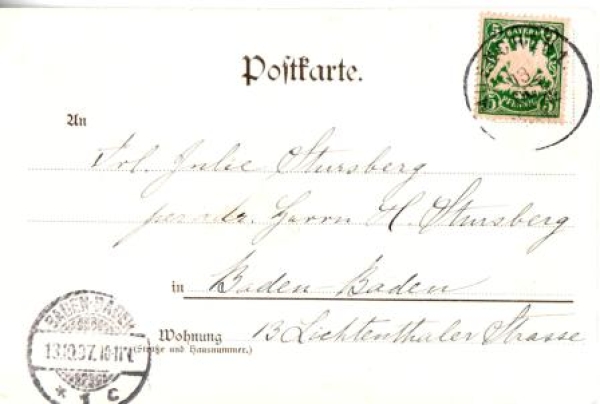 Postkarte.
BAYERN
5 5
PFENNIG
13
An
Frl. Julie Stursberg
per adr. Herrn H. Stursberg
in Baden-Baden
Wohnung 13 Lichtenthaler Strasse
(Straße und Hausnummer.)
BADEN-BADEN
13.10.97. 10-11V.
* 1 C